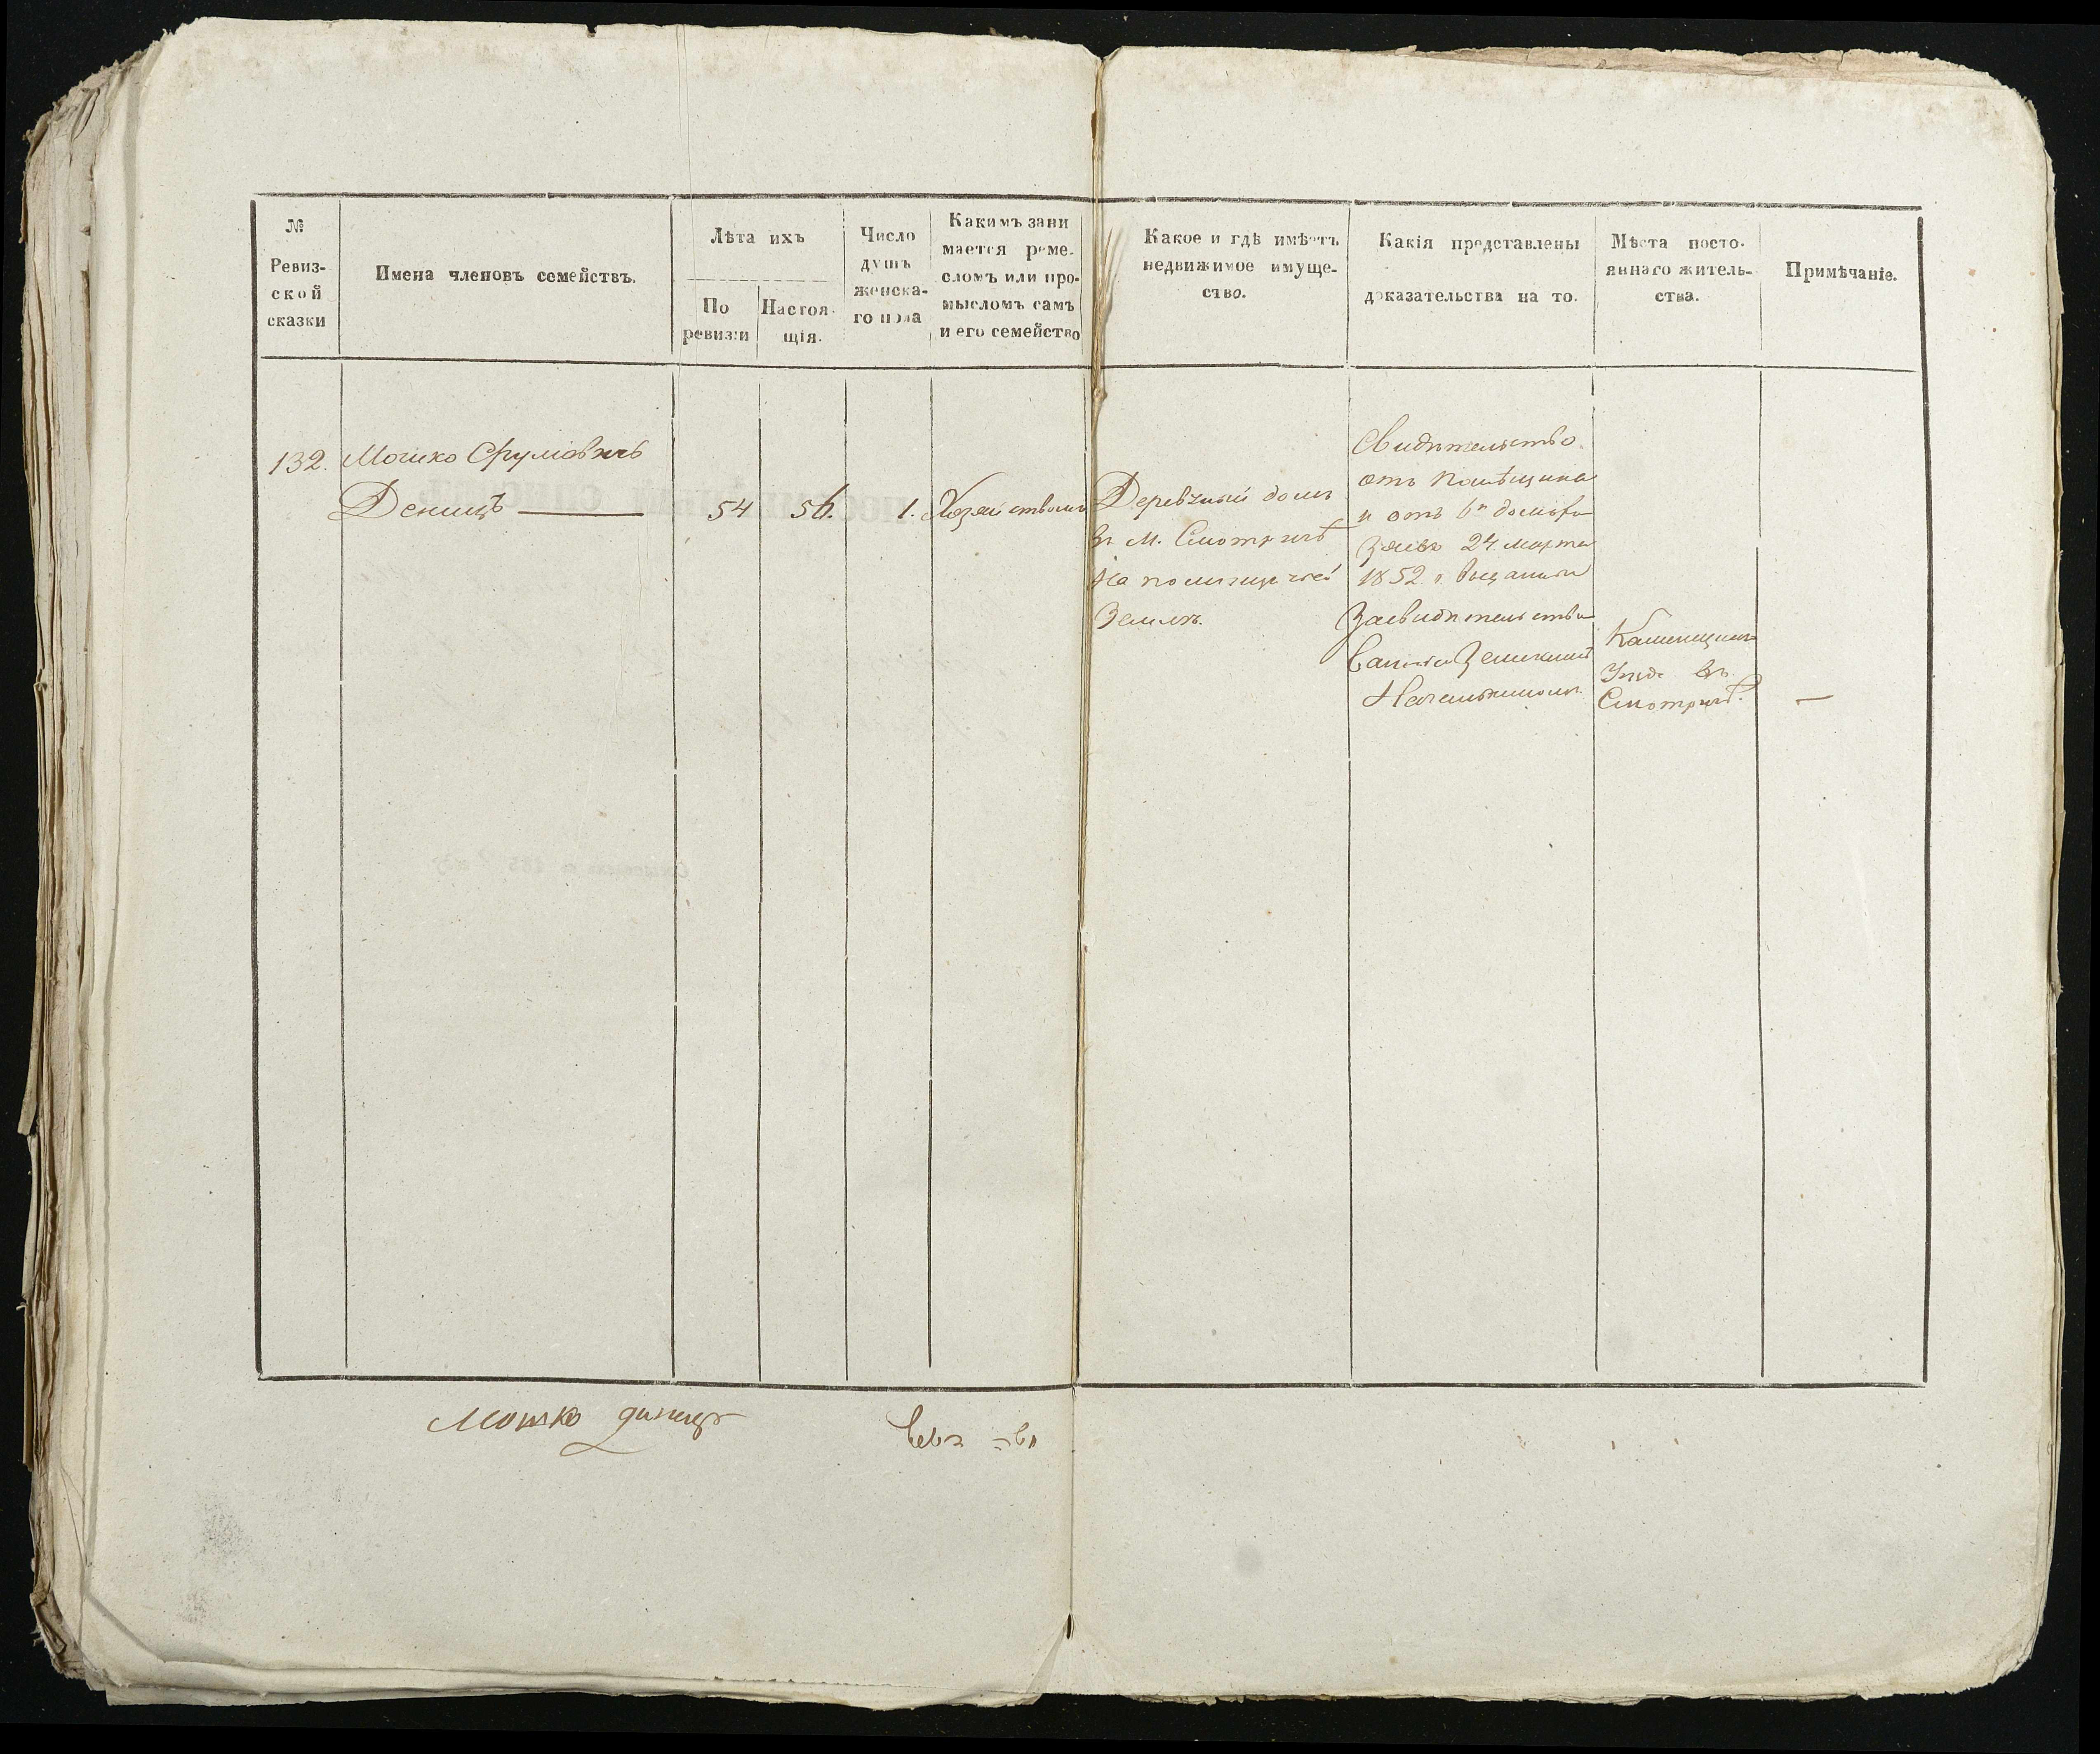 №
Ревиз-
ской
сказки
Имена членовъ семействъ.
Лѣта ихъ
По
ревизіи
Настоя-
щія.
Число
душъ
женска-
го пола
Какимъ зани
мается реме-
сломъ или про-
мысломъ самъ
и его семейство
Какое и гдѣ имѣетъ
недвижимое имуще-
ство.
Какія представлены
доказательства на то.
Мѣста посто-
яннаго житель-
ства.
Примѣчаніе.
132. Мошко Срумовичъ
Деницъ — 54 56. 1. Хозяйствомъ
Деревяный домъ
въ м. Смотричѣ
на помещичьей
землѣ.
Свидѣтельство
отъ помѣщика
и отъ 6ⁿ домохо
зяевъ 24 марта
1852 г. выданныя
Засвидѣтельство
ванныя Земскимъ
Начальникомъ
Каменецкомъ
Уѣзде въ
Смотричѣ.
—
Мошко